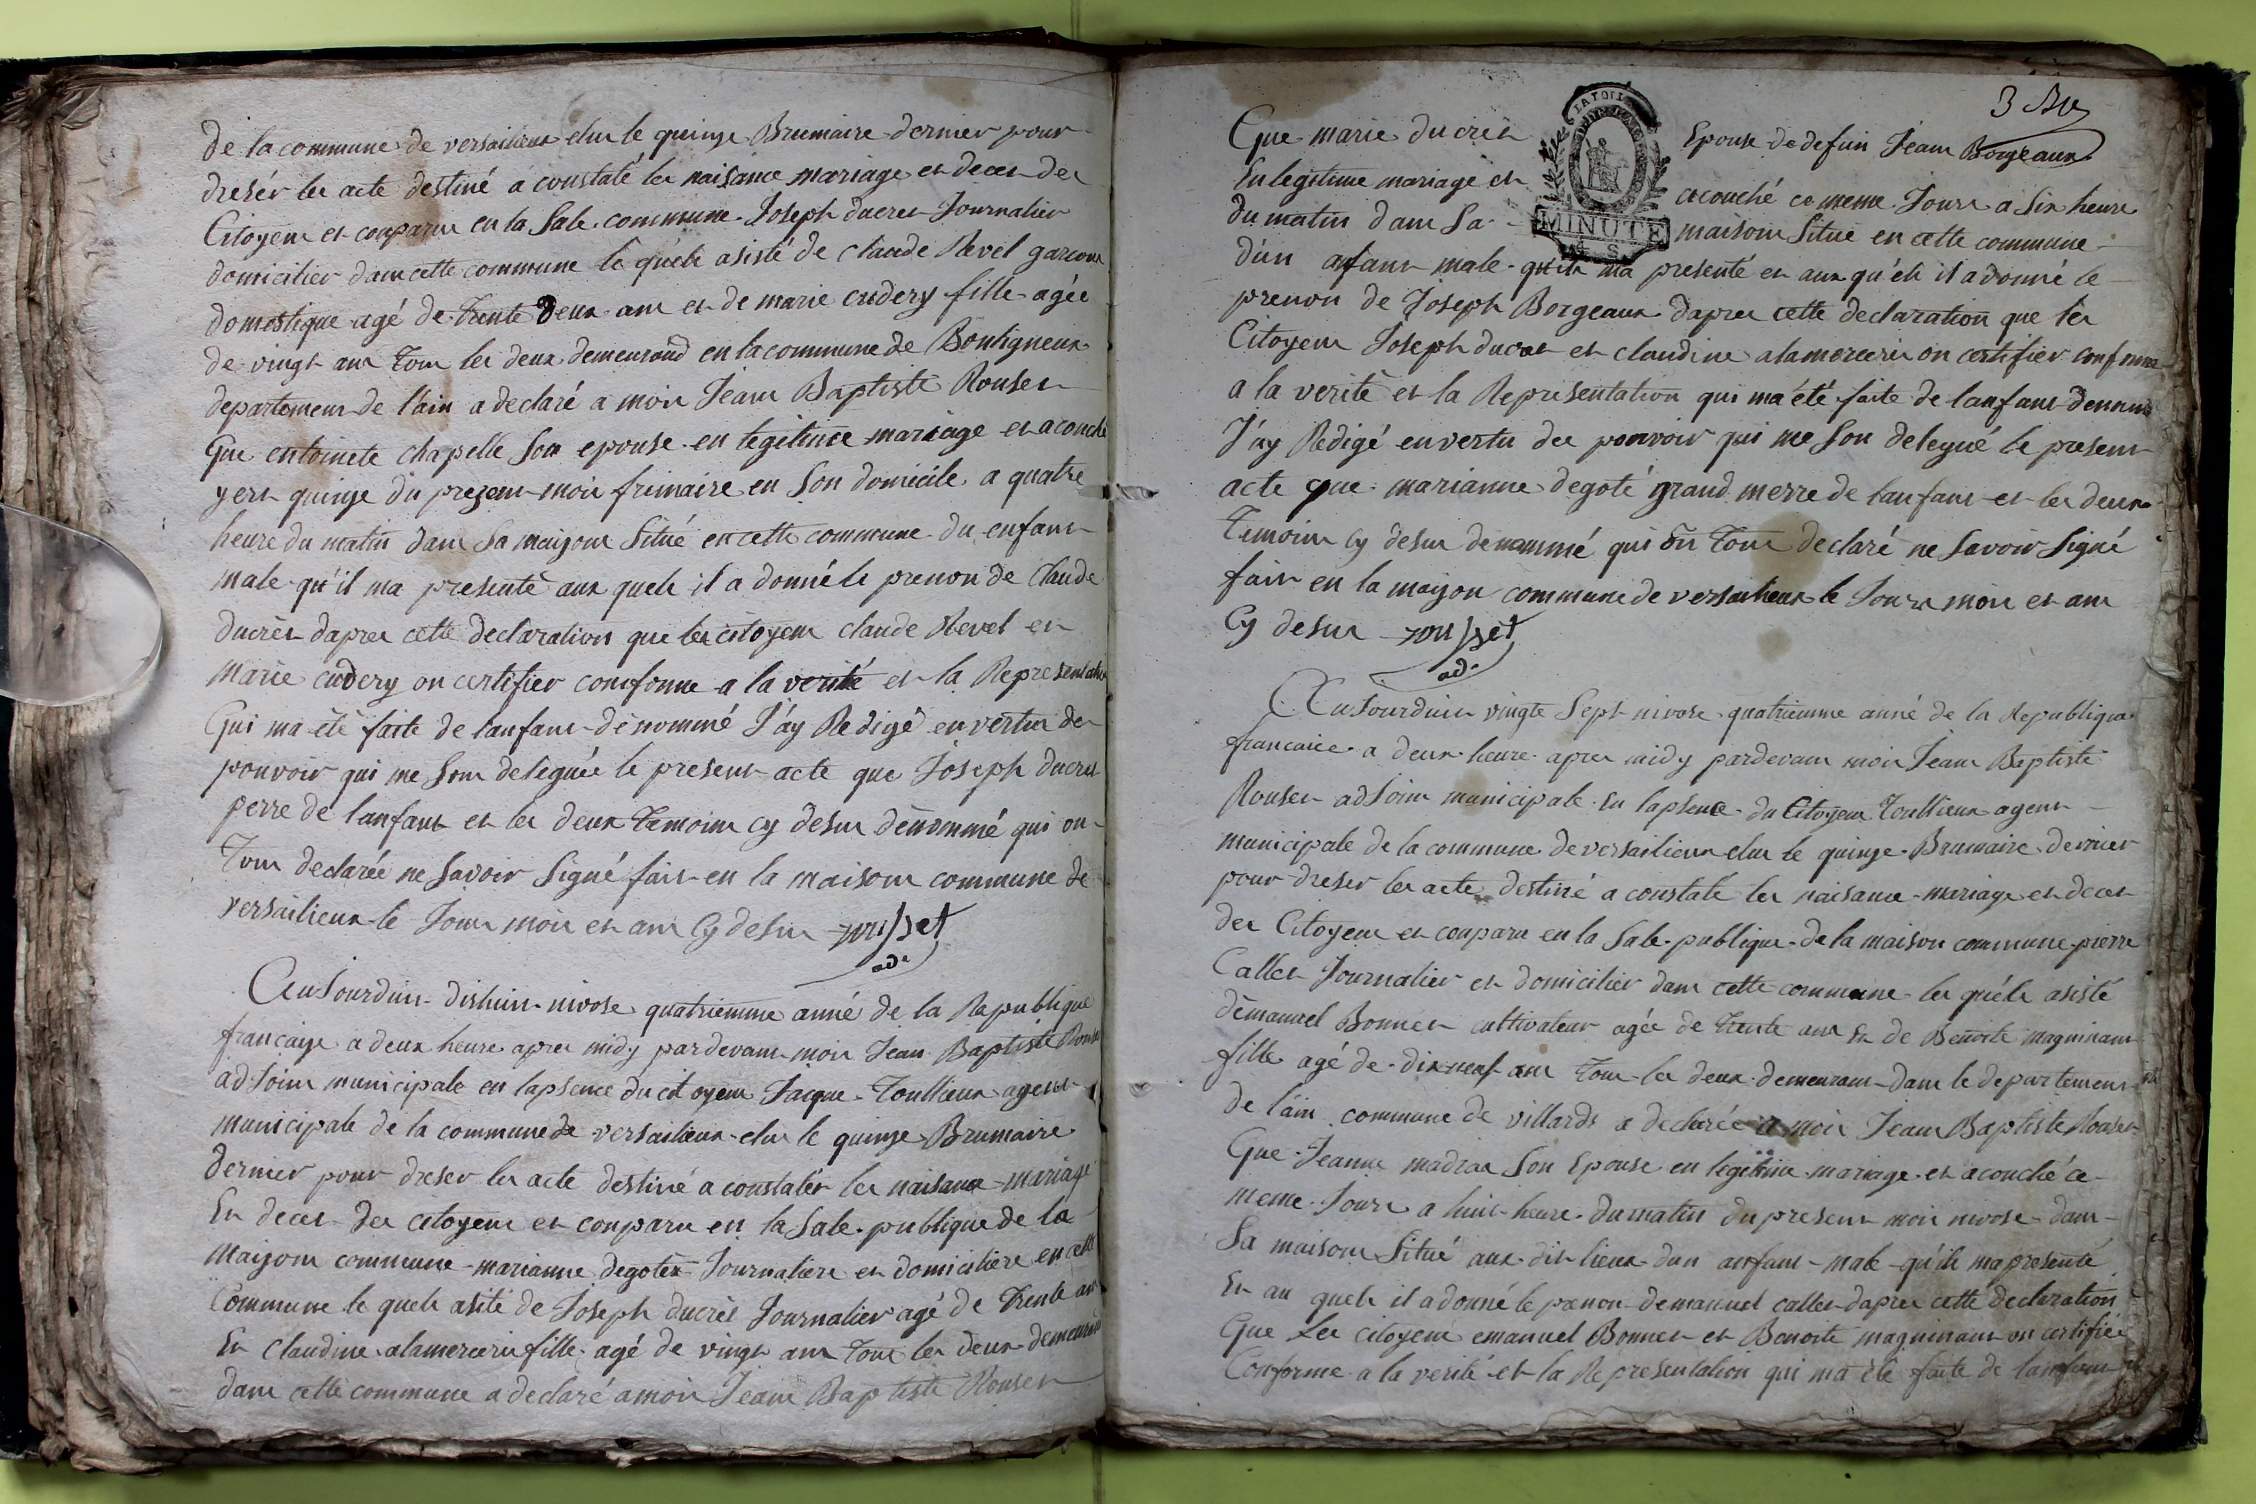 de la commune de versailieux elur le quinze Brumaire dernier pour
dresér les acte destiné a constaté les naisance mariage et deces des
Citoyens et conparu en la Sale commune Joseph ducret Journalier
domicilier dans cette commune le quéle asisté de claude Revel garcons
domestique agé de Trente deux ans et de marie cudery fille agée
de vingt ans tous les deux demeurand en la commune de Bouligneux
departement de l'ain a declaré a mois Jean Baptiste Rouset
Que entoinete chapelle Son epouse en legitime mariage et aconché
yert quinze du prezent mois frimaire en Son domicile a quatre
heure du matin dans Sa maizon Situé en cette commune du enfant
male qu'il ma presenté aux quele il a donné le prenon de Claude
ducrèt dapres cette declaration que les citoyens claude Revel et
Marie cudery on certifier comforme a la verité et la Representation
Qui ma été faite de lanfant dénommé J'ay Redigé en vertu des
pouvoir qui me Son deleguée le present acte que Joseph ducret
perre de lanfant et les deux temoins cy desus dénommé qui on
Tous declarée ne Savoir Signé fait en la maison commune de
versailieux le Jour mois et ans Cy desus rousset
adt
AuJourduis dishuit nivose quatriemme anné de la Republique
francaize a deux heure apres midy pardevant mois Jean Baptiste Rouset
adJoint municipale en lapsence du citoyens Jacque Toullieux agent
municipale de la commune de versailieux elus le quinze Brumaire
dernier pour dreser les acte destiné a constatér les naisance mariage
Et deces des citoyens et conparu en la Sale publique de la
Maizon commune marianne degotèx Journaliere et domiciliere en cette
Commune le quele asité de Joseph ducrèt Journalier agé de Trente ans
Et Claudine alamercerie fille agé de vingt ans tous les deux demeurant
dans cette commune a declaré a mois Jean Baptiste Rouset
3 Bre
Que marie ducret Epouse de defun Jean Borgeaux
En legitime mariage et acouché ce meme Jour a Six heure
du matin dans Sa maison Situé en cette commune
LA LOI
MINUTE
4 S
d'un anfant male qu'ele ma presenté et aux qu'ele il a donné le
prenon de Joseph Borgeaux dapres cette declaration que les
Citoyens Joseph ducret et claudine alamercerie on certifier conforme
a la verité et la Representation qui ma été faite de lanfant denommé
J'ay Redigé en vertu des pouvoir qui me Son delegué le present
acte que marianne degoté grand merre de lanfant et les deux
Temoins cy desus denommé qui on Tous declaré ne Savoir Signé
fait en la maizon commune de versailieux le Jours mois et ans
Cy desus rousset
adt
AuJourduis vingte Sept nivose quatriemme anné de la Republique
francaice a deux heure apres midy pardevant mois Jean Baptiste
Rouset adJoint municipale En lapsence du Citoyens Toullieux agent
municipale de la commune de versailieux elus le quinze Brumaire dernier
pour dreser les acte destiné a constaté les naisance mariage et deces
des Citoyens et conparu en la Sale publique de la maison commune pierre
Callet Journalier et domicilier dans cette commune les quéle asisté
démanuel Bonnet cultivateur agée de Trente ans Et de Benoite magninant
fille agé de dix neuf ans tous les deux demeurant dans le departement
de l'ain commune de villards a declarée a mois Jean Baptiste Rouset
Que Jeanne madras Son Epouse en legitime mariage et acouché ce
meme Jours a huit heure du matin du present mois nivose dans
Sa maison Situé aux dit lieux dun anfant male qu'ile ma presenté
Et au quele il a donné le prenon demanuel callet dapres cette declaration
Que Les citoyens emanuel Bonnet et Benoite magninant on certifiée
Conforme a la verité et la Representation qui ma été faite de lanfant